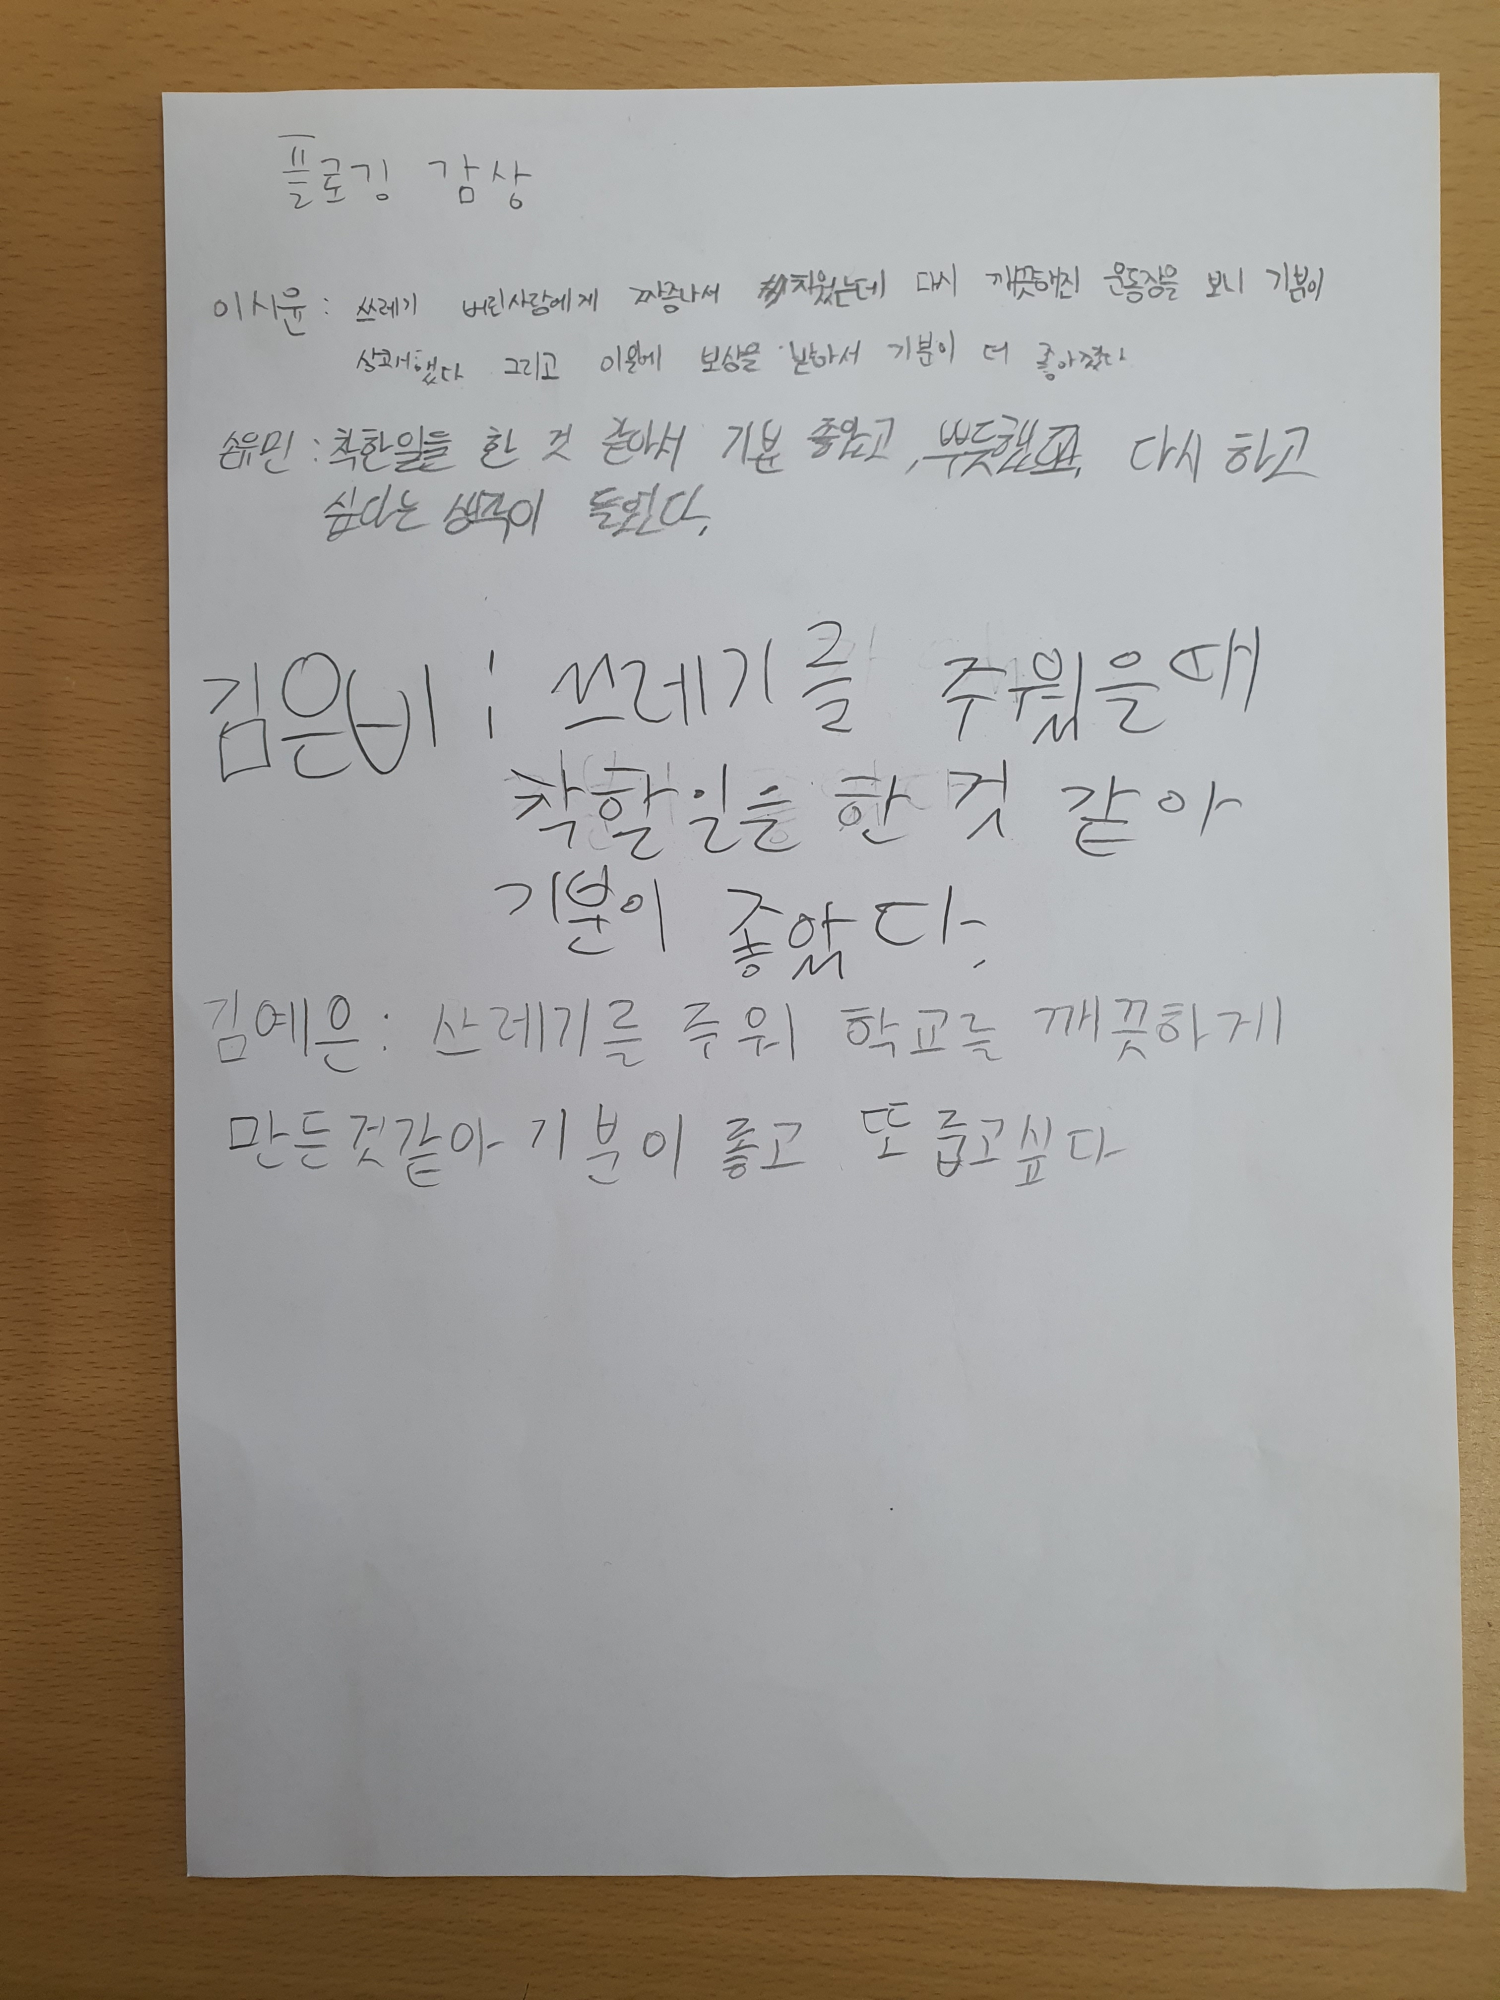 플로깅 감상
이시윤 : 쓰레기 버린사람에게 짜증나서 치웠는데 다시 깨끗해진 운동장을 보니 기분이
상쾌했다 그리고 이일에 보상을 받아서 기분이 더 좋아졌다
송유민 : 착한일들 한 것 같아서 기분 좋았고, 뿌듯했고, 다시 하고
싶다는 생각이 들었다.
김은비 : 쓰레기를 주웠을때
착할일은 한 것 같아
기분이 좋았다.
김예은 : 쓰레기를 주워 학교를 깨끗하게
만든것같아 기분이 좋고 또 줍고싶다